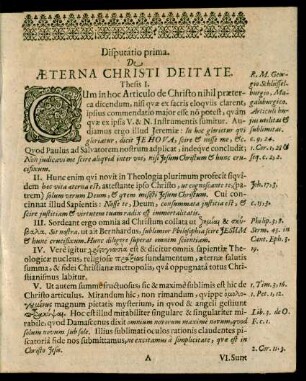 Disputatio prima.
De
ÆTERNA CHRISTI DEITATE.
Thesis I.
CUm in hoc Articulo de Christo nihil præterea dicendum, nisi quæ ex sacris eloquiis clarent,
ipsius commendatio major esse nō potest, quàm
quæ ex ipsa V. & N. Instrumenti sumitur. Audiamus ergo illud Jeremiæ: In hoc glorietur qui
gloriatur, scire & nosse me, &c.
Quod Paulus ad Salvatorem nostrum adplicat; indeque concludit;
Non judicavimus scire aliquid inter vos, nisi Jesum Christum & hunc crucifixum.
II. Hunc enim qui novit in Theologia plurimum profecit siquidem hæc vita æterna est, attestante ipso Christo ut cognoscant te patrem
solum verum Deum, & quem misisti Jesum Christum. Cui concinnat illud Sapientis: Nosse te, Deum, consummata justitia est, &
scire justitiam & virtutem tuam radix est immortalitatis.
III. Sordeant ergo omnia ad Christum collata
Sit nostra, ut ait Bernhardus, sublimior Philosophia scire JESUM
& hunc crucifixum.
IV. Verè igitur est & dicitur omnis sapientiæ Theologicæ nucleus, religiosis fundamentum, æternæ salutis
summa, & fides Christianæ metropolis, quâ oppugnatâ totus Christianismus labitur.
V. Ut autem summè fructuosus sic & maximè sublimis est hic de
Christo articulus. Mirandum hic, non rimandum, quippe
magnum pietatis mysterium, in quod & angeli gestiunt
Hoc est illud mirabiliter singulare & singulariter mirabile, quod Damascenus dicit omnium novorum maximè novum, quod
solum novum sub sole. Illius sublimitati oculos rationis claudentes piscatoriâ fide nos submittamus, ne excitamus à simplicitate, quæ est in
Christo Jesu.
A
VI. Sunt
R. M. Georgio Schlüsselburgio, Magdeburgico.
Articuli hujus utilitas &
sublimitas.
c. 9. 24
1. Cor. 1, 31
& 2. 2.
Joh. 17. 3.
Philip. 3. 8.
Serm. 43. in
Cant. Eph. 3.
19.
1. Tim. 3. 16.
1. Pet. 1. 12.
Lib. 3. de O.
F. c. 1.
2. Cor. 11. 3.